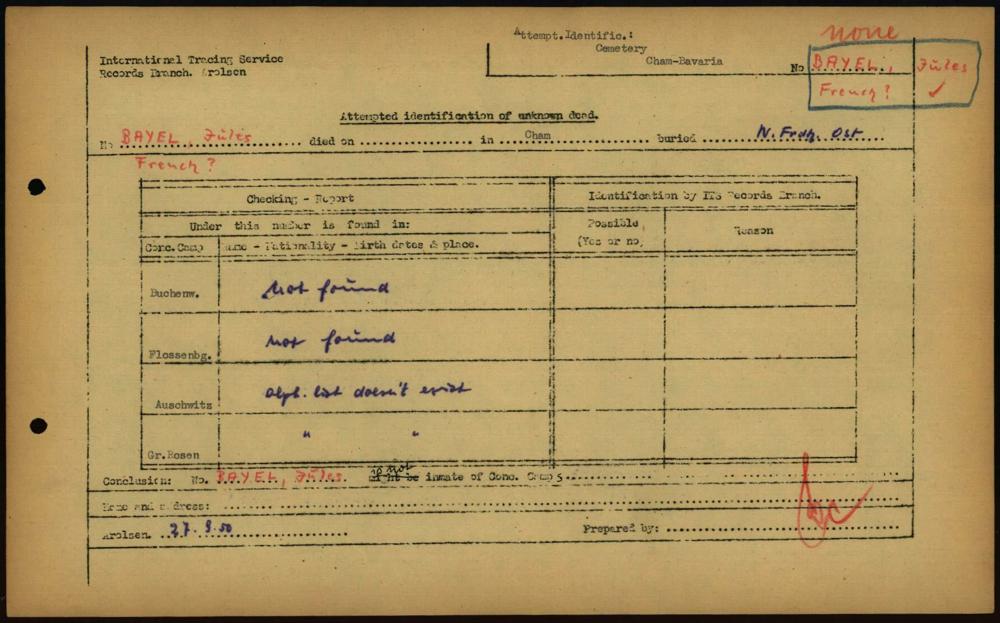 none
Attempt. Identific.:
Cemetery
Cham-Bavaria
International Tracing Service
Records Branch. Arolsen
No BAYEL, Jules
French? ✓
Attempted identification of unknown dead.
No BAYEL, Jules died on .................. in ... Cham ............ buried ........ N. Frdh. Ost ...
French?
Checking - Report
Identification by ITS Records Branch.
Under this number is found in:
Possible
(Yes or no)
Reason
Conc. Camp
Name - Nationality - Birth dates & place.
Buchenw. not found
Flossenbg. not found
Auschwitz alph. list doesn't exist
Gr. Rosen " "
Conclusion: No. BAYEL, Jules is not might be inmate of Conc. Camps
Name and address:
Arolsen. 27. 9. 50
Prepared by: